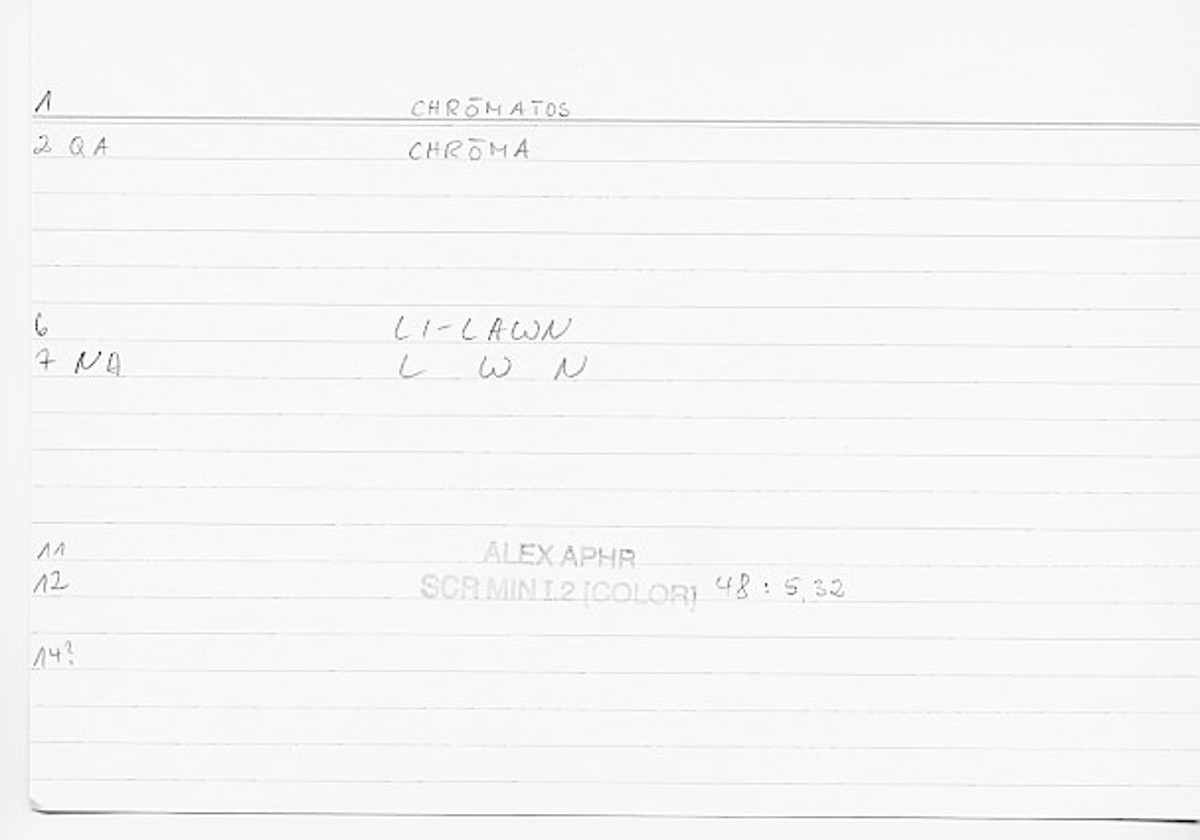 1 CHRŌMATOS
2 QA CHRŌMA
6 LI-LAWN
7 NA L W N
11 ALEX APHR
12 SCR MIN I.2 [COLOR] 48 : 5, 32
14?